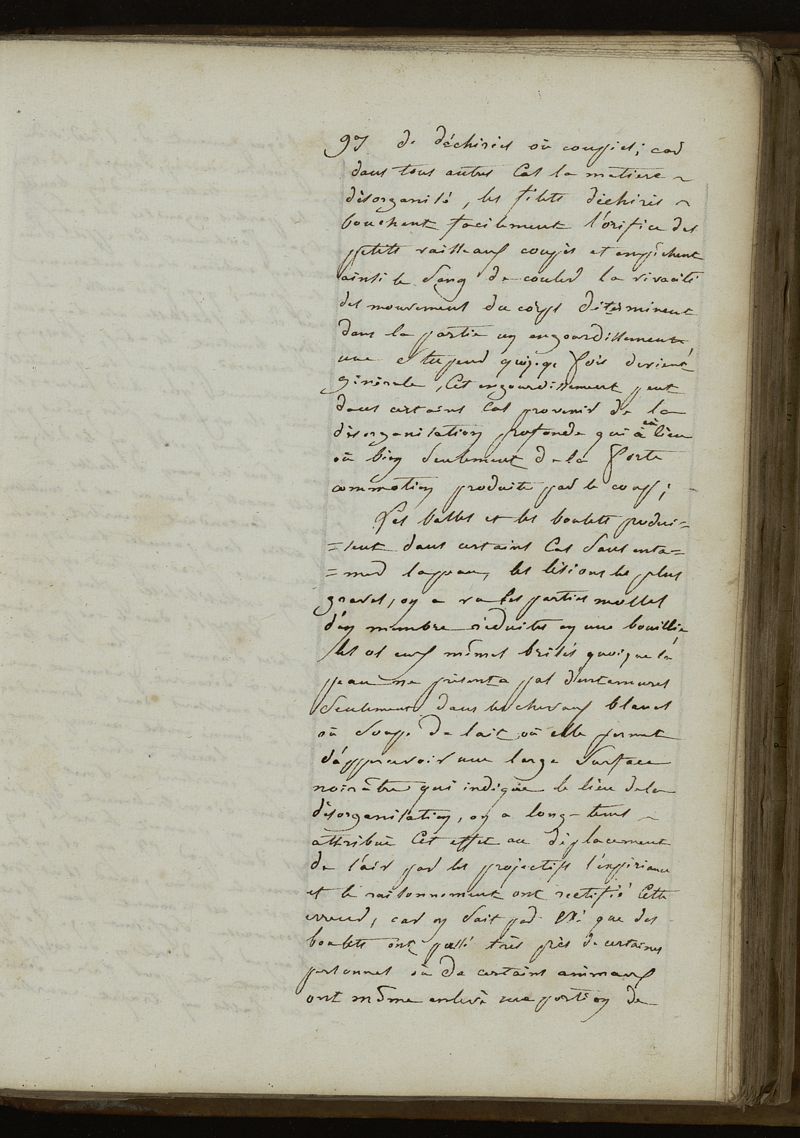 gos de déchirés où coupiés; car
dans tous autres Cas la matiere ~
désorganisé, les filets déchirés ~
bouchent facilement l'orifice des
petits vaisseaux coupés et empéchent
ainsi le Sang de couler la vivacité
des mouvement du corps déterminent
dans la partie un engourdissement
une Stupeur quelque fois devient
générale, Cet engourdissement peut
dans certains Cas provenir de la
désorganisation profonde qui à eu lieu
où bien Seulement de la forte
commotion produite par le coup;
Les balles et les boulets produi=
=sent dans certains Cas Sans enta=
=mer la peau, les lésions les plus
graves, on a vu les parties molles
d'un membre réduites en une bouillie
les os eux mêmes brisés quoique la
peau ne présenta pas d'entamures
Seulement dans les chevaux blancs
où Soupe de lait où elle permet
d'appercevoir une large Surface
noirâtre qui indique le lieu de la
désorganisation, on a long-tems ~
attribué Cet effet au déplacement
de l'air par les projectifs l'expérience
et le raisonnement ont rectifié Cette
erreur, car on Sait par que des
boulets ont passé très près de certaines
personnes où de certains animaux
ont même enlevé une portion de